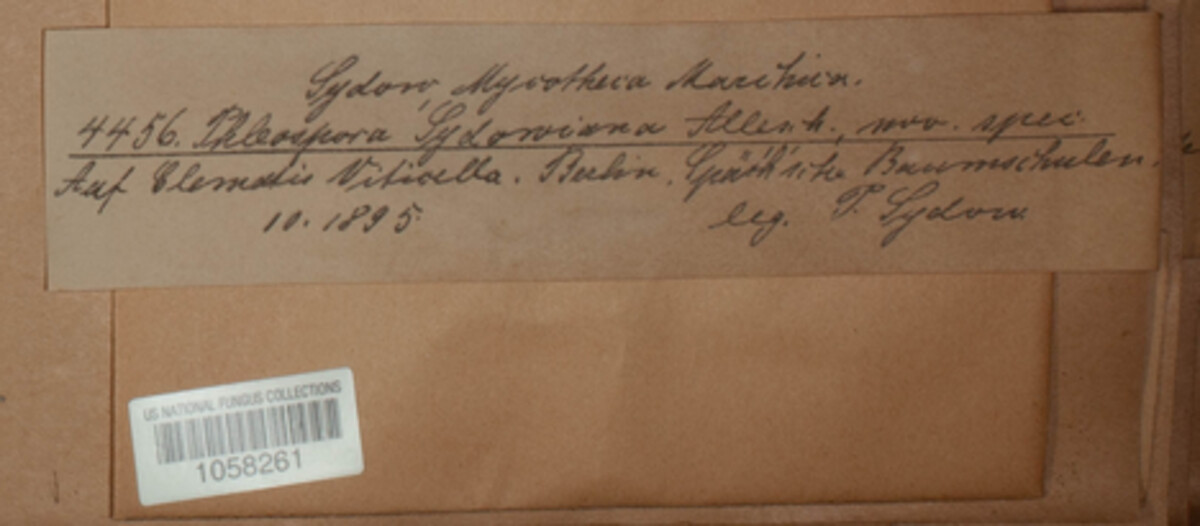 Sydow, Mycotheca Marchica.
4456. Phleospora Sydowiana Allesch., nov. spec.
Auf Clematis Viticella. Berlin, Späth'sche Baumschulen.
10. 1895. leg. P. Sydow.
US NATIONAL FUNGUS COLLECTIONS
1058261